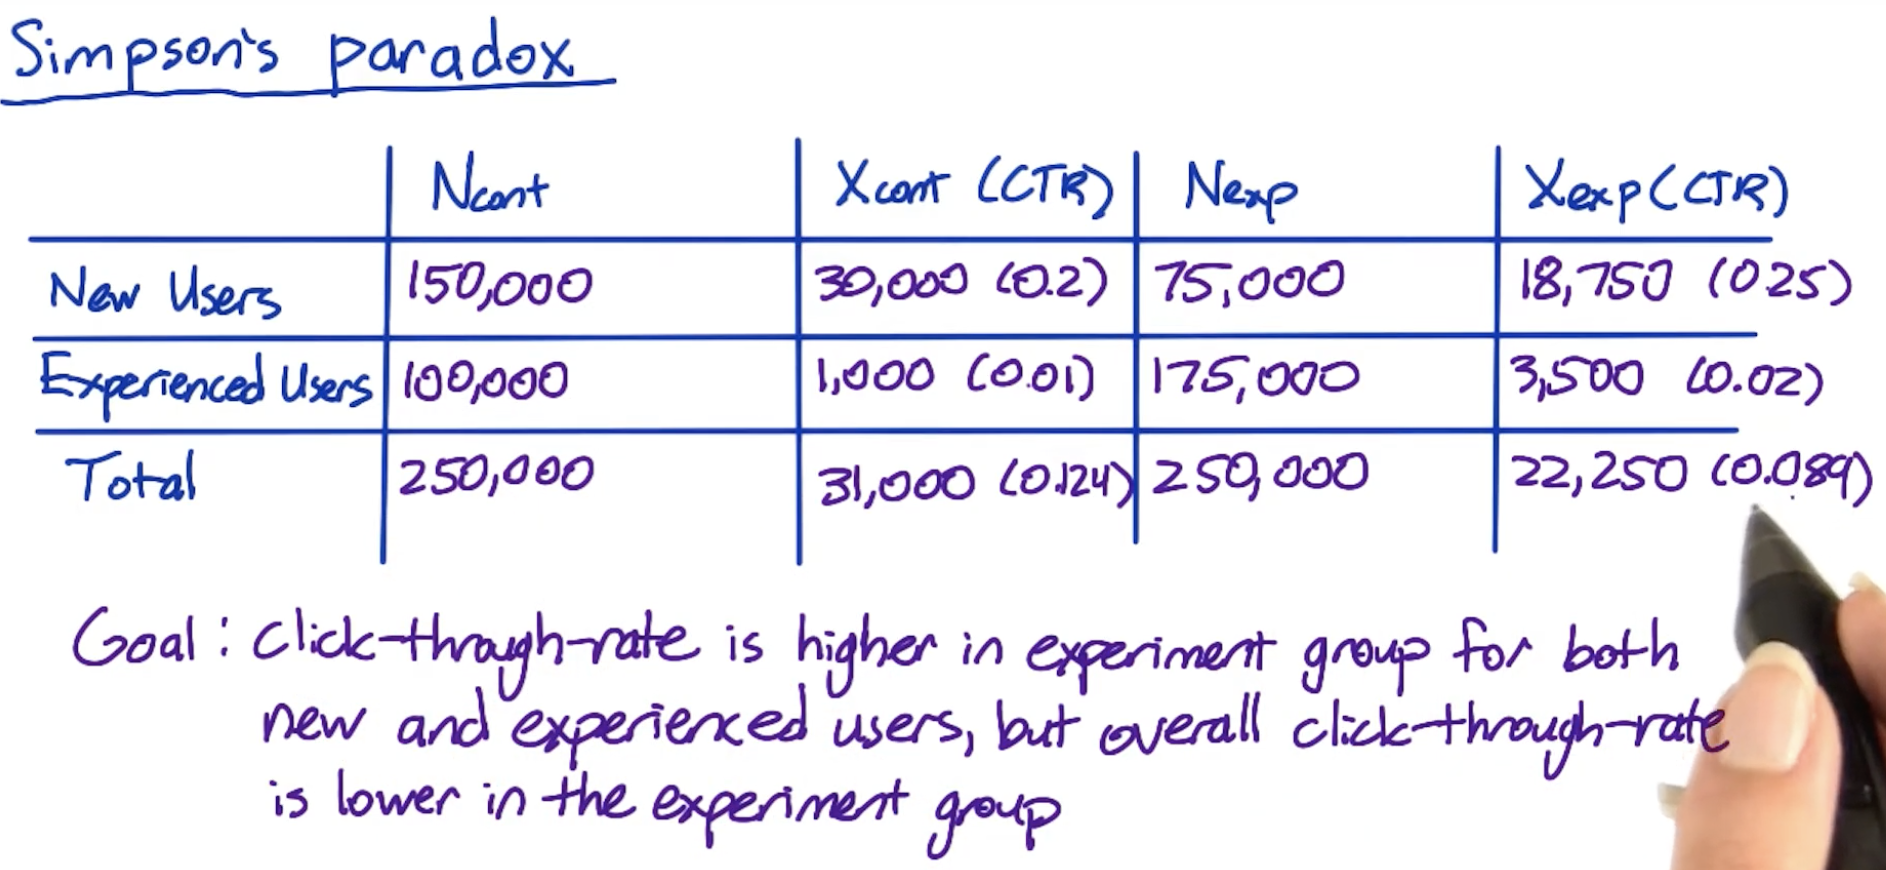 Simpson's paradox
Ncont Xcont (CTR) Nexp Xexp (CTR)
New Users 150,000 30,000 (0.2) 75,000 18,750 (0.25)
Experienced Users 100,000 1,000 (0.01) 175,000 3,500 (0.02)
Total 250,000 31,000 (0.124) 250,000 22,250 (0.089)
Goal: click-through-rate is higher in experiment group for both
new and experienced users, but overall click-through-rate
is lower in the experiment group